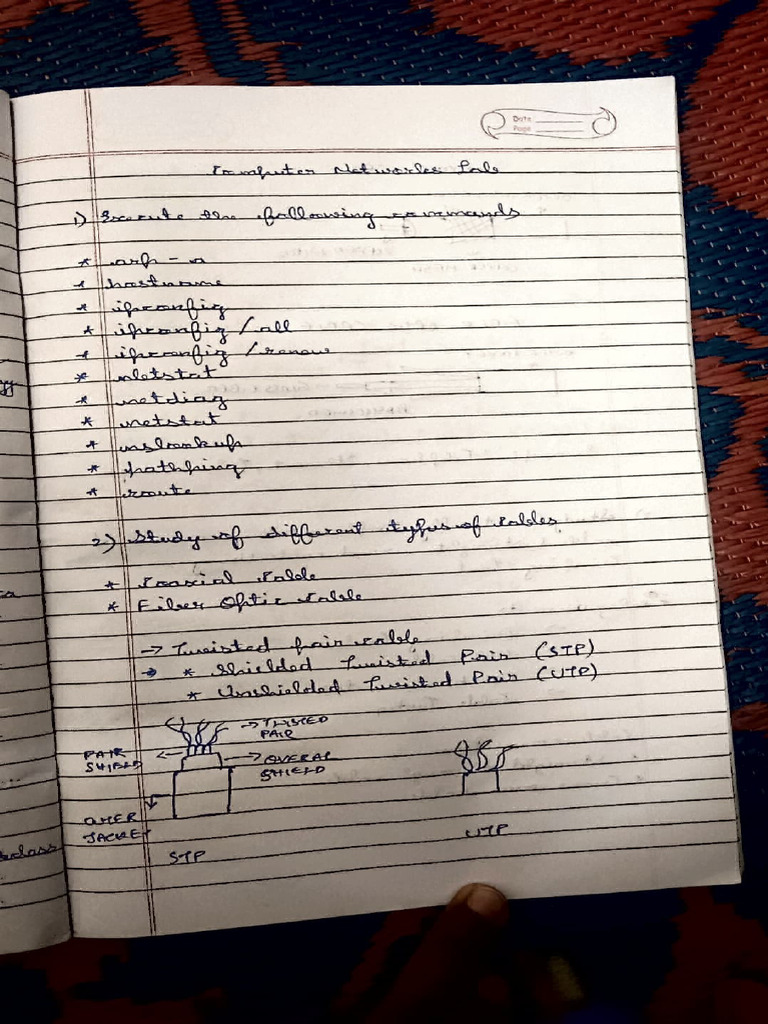 Date
Page
Computer Networks Lab
1) Execute the following commands
* arp - a
* hostname
* ipconfig
* ipconfig / all
* ipconfig / renew
* netstat
* netdiag
* netstat
* nslookup
* pathping
* route
2) Study of different types of Cables
* Coaxial Cable
* Fiber Optic Cable
→ Twisted pair cable
→ * Shielded Twisted Pair (STP)
* Unshielded Twisted Pair (UTP)
→ TWISTED
PAIR
PAIR
SHIELD
→ OVERAL
SHIELD
OUTER
JACKET
STP
UTP